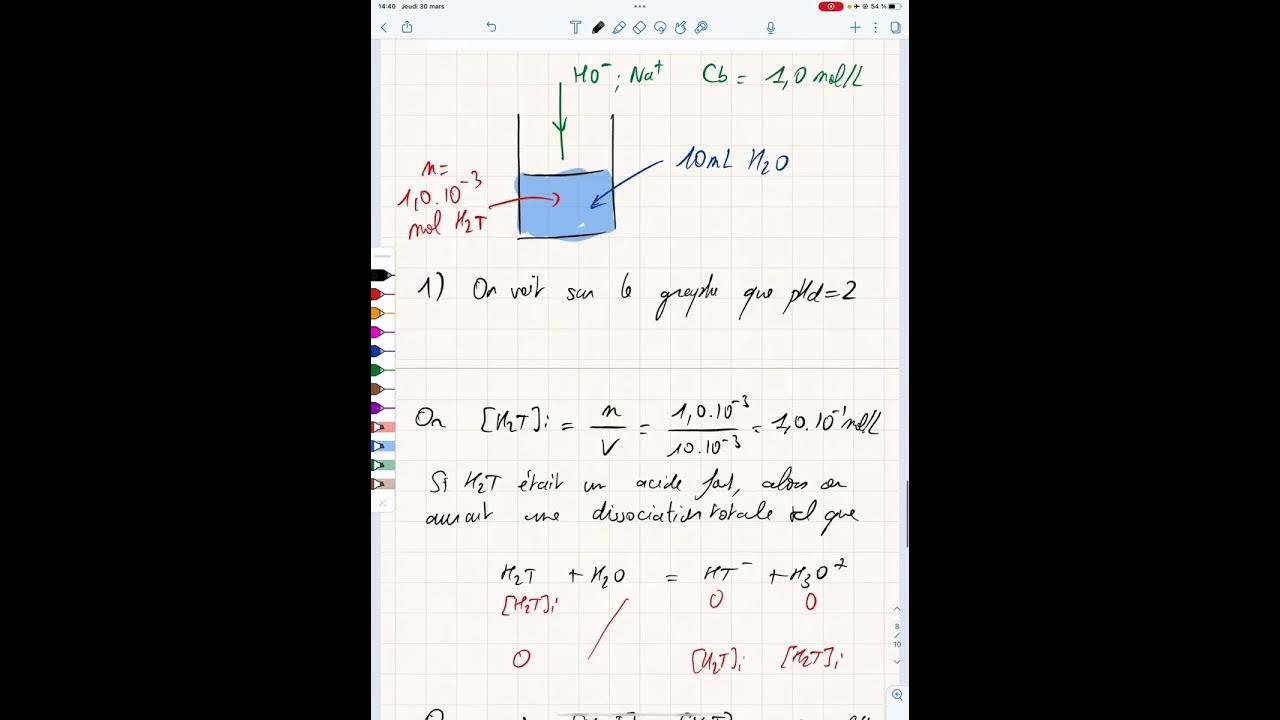 14:40 Jeudi 30 mars
54 %
HO⁻ ; Na⁺ Cb = 1,0 mol/L
10mL H₂O
n=
1,0.10⁻³
mol H₂T
1) On voit sur le graphe que pHd=2
On [H₂T]i = n/V = 1,0.10⁻³/10.10⁻³ = 1,0.10⁻¹ mol/L
Si H₂T était un acide fort, alors on
aurait une dissociation totale tel que
H₂T + H₂O = HT⁻ + H₃O⁺
[H₂T]i 0 0
0 [H₂T]i [H₂T]i
8
/
10